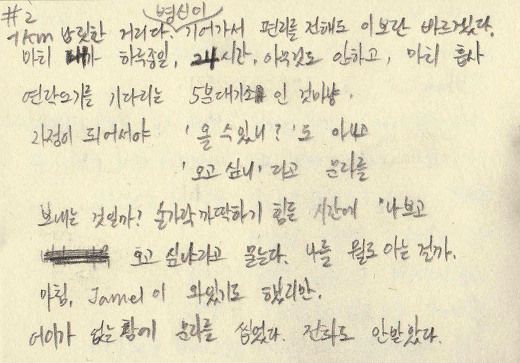 #2
1km 남짓한 거리다. 병신이 기어가서 편지를 전해도 이보단 빠르겠다.
마치 내가 하루종일, 24시간, 아무것도 안하고, 마치 흡사
연락오기를 기다리는 5분대기조인 것마냥.
자정이 되어서야 '올 수 있니?'도 아니고
'오고 싶니'라고 문자를
보내는 것일까? 손가락 까딱하기 힘든 시간에 '나보고
오고 싶냐'라고 묻는다. 나를 뭘로 아는 걸까.
마침, Jamel이 와있기도 했지만.
어이가 없는 참에 문자를 씹었다. 전화도 안받았다.